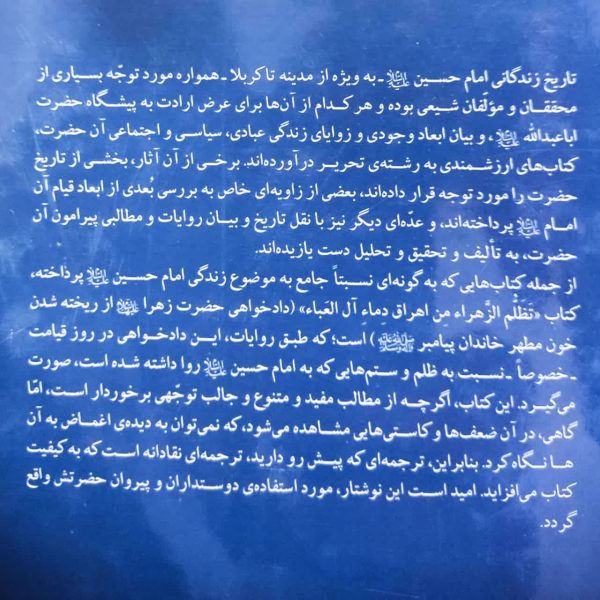 تاریخ زندگانی امام حسین علیه‌السلام - به ویژه از مدینه تا کربلا - همواره مورد توجّه بسیاری از
محققان و مؤلّفان شیعی بوده و هر کدام از آن‌ها برای عرض ارادت به پیشگاه حضرت
اباعبدالله علیه‌السلام، و بیان ابعاد وجودی و زوایای زندگی عبادی، سیاسی و اجتماعی آن حضرت،
کتاب‌های ارزشمندی به رشته‌ی تحریر درآورده‌اند. برخی از آن آثار، بخشی از تاریخ
حضرت را مورد توجه قرار داده‌اند، بعضی از زاویه‌ای خاص به بررسی بُعدی از ابعاد قیام آن
امام علیه‌السلام پرداخته‌اند، و عدّه‌ای دیگر نیز با نقل تاریخ و بیان روایات و مطالبی پیرامون آن
حضرت، به تألیف و تحقیق و تحلیل دست یازیده‌اند.
از جمله کتاب‌هایی که به گونه‌ای نسبتاً جامع به موضوع زندگی امام حسین علیه‌السلام پرداخته،
کتاب «تَظَلُّم الزَّهراء مِن اهراق دماءِ آل العَباء» (دادخواهی حضرت زهرا علیهاالسلام از ریخته شدن
خون مطهر خاندان پیامبر صلی‌الله‌علیه‌وآله) است؛ که طبق روایات، این دادخواهی در روز قیامت
- خصوصاً - نسبت به ظلم و ستم‌هایی که به امام حسین علیه‌السلام روا داشته شده است، صورت
می‌گیرد. این کتاب، اگرچه از مطالب مفید و متنوع و جالب توجّهی برخوردار است، امّا
گاهی، در آن ضعف‌ها و کاستی‌هایی مشاهده می‌شود، که نمی‌توان به دیده‌ی اغماض به آن
ها نگاه کرد. بنابراین، ترجمه‌ای که پیش رو دارید، ترجمه‌ای نقادانه است که به کیفیت
کتاب می‌افزاید. امید است این نوشتار، مورد استفاده‌ی دوستداران و پیروان حضرتش واقع
گردد.